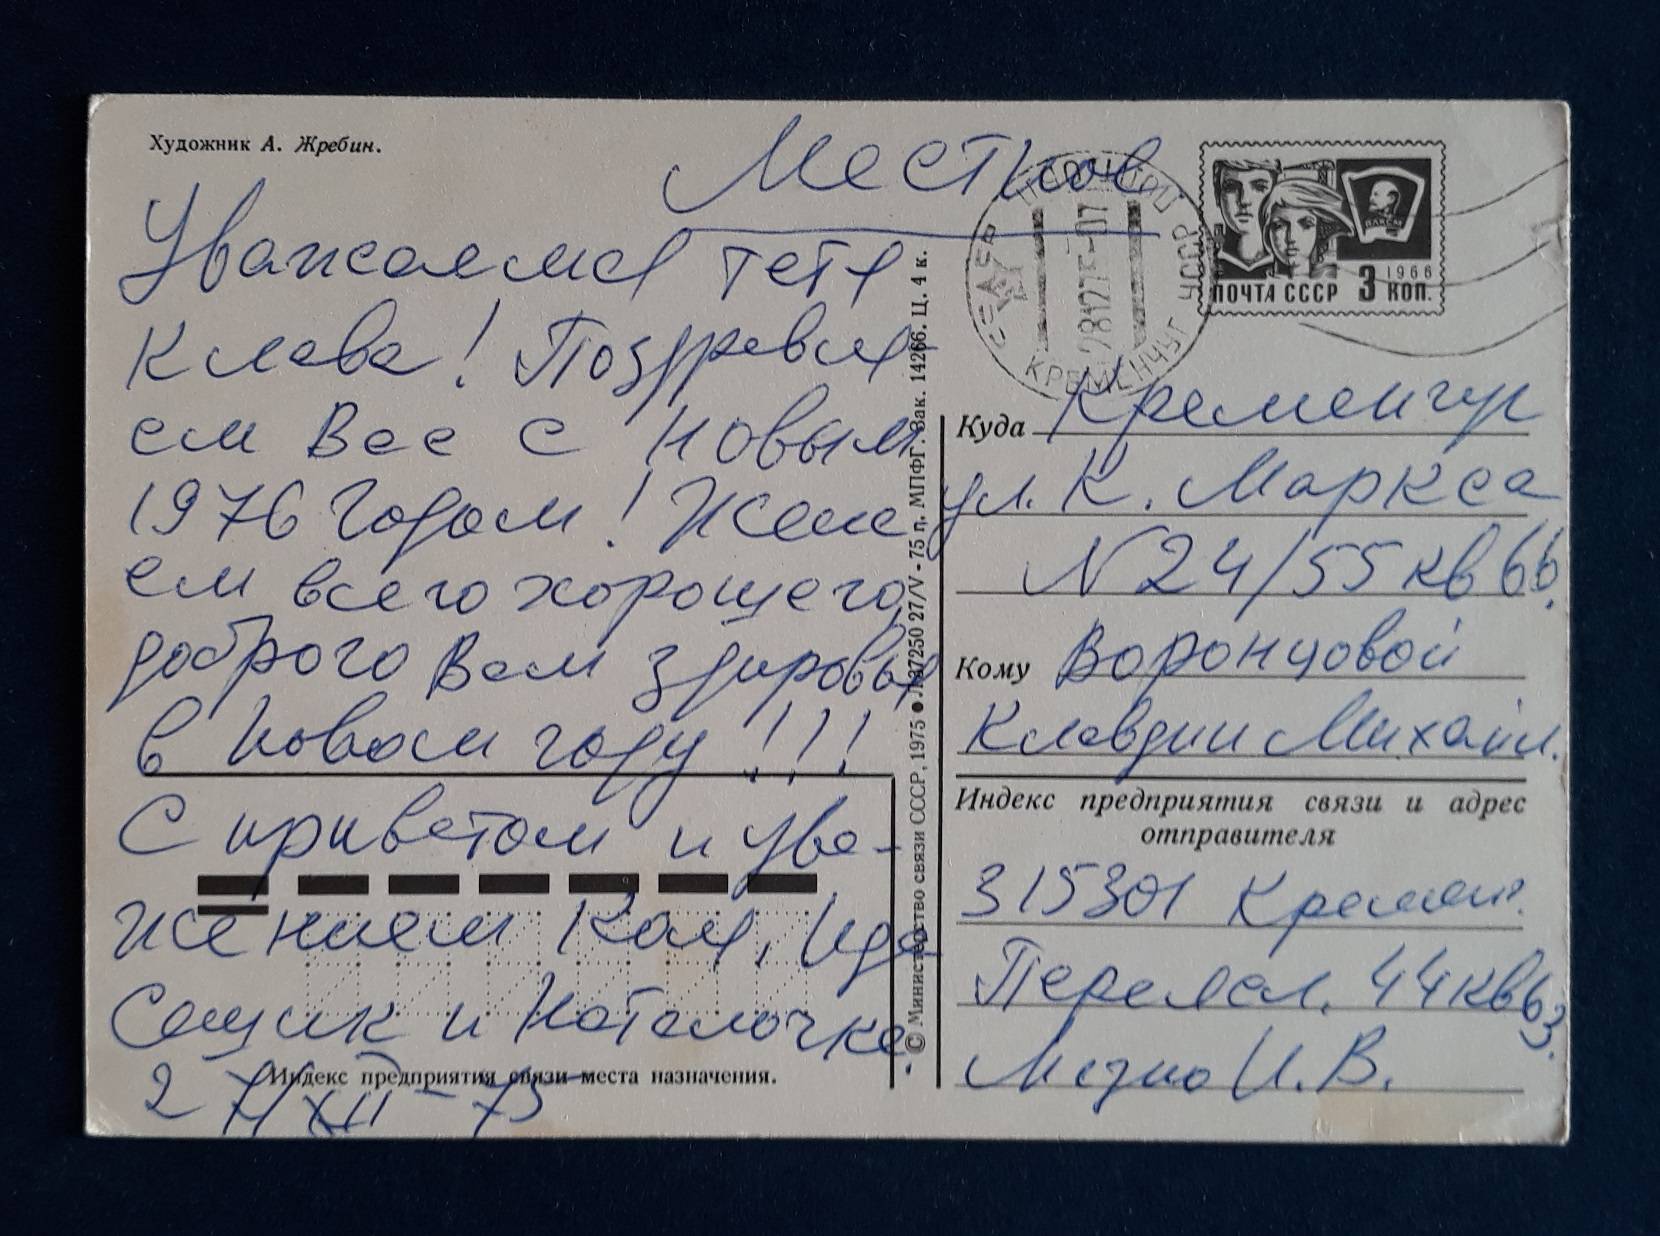 Художник А. Жребин.
Местное
Уважаемая тетя
Клава! Поздравля-
ем Вас с Новым
1976 годом! Желае
ем всего хорошего,
доброго Вам здоровья
в Новом году!!!
С приветом и ува-
жением Коля, Ида
Сащик и Наталочка.
27/XII-75
Индекс предприятия связи места назначения.
© Министерство связи СССР, 1975 ● 27/V - 75 г. МПФГ. Зак. 14266. Ц. 4 к.
СССР
УССР
28127507
КРЕМЕНЧУГ
1966
ПОЧТА СССР 3 КОП.
Куда Кременчуг
ул. К. Маркса
N 24/55 кв 66.
Кому Воронцовой
Клавдии Михайл.
Индекс предприятия связи и адрес
отправителя
315301 Кременч.
44 кв 63.
И. В.